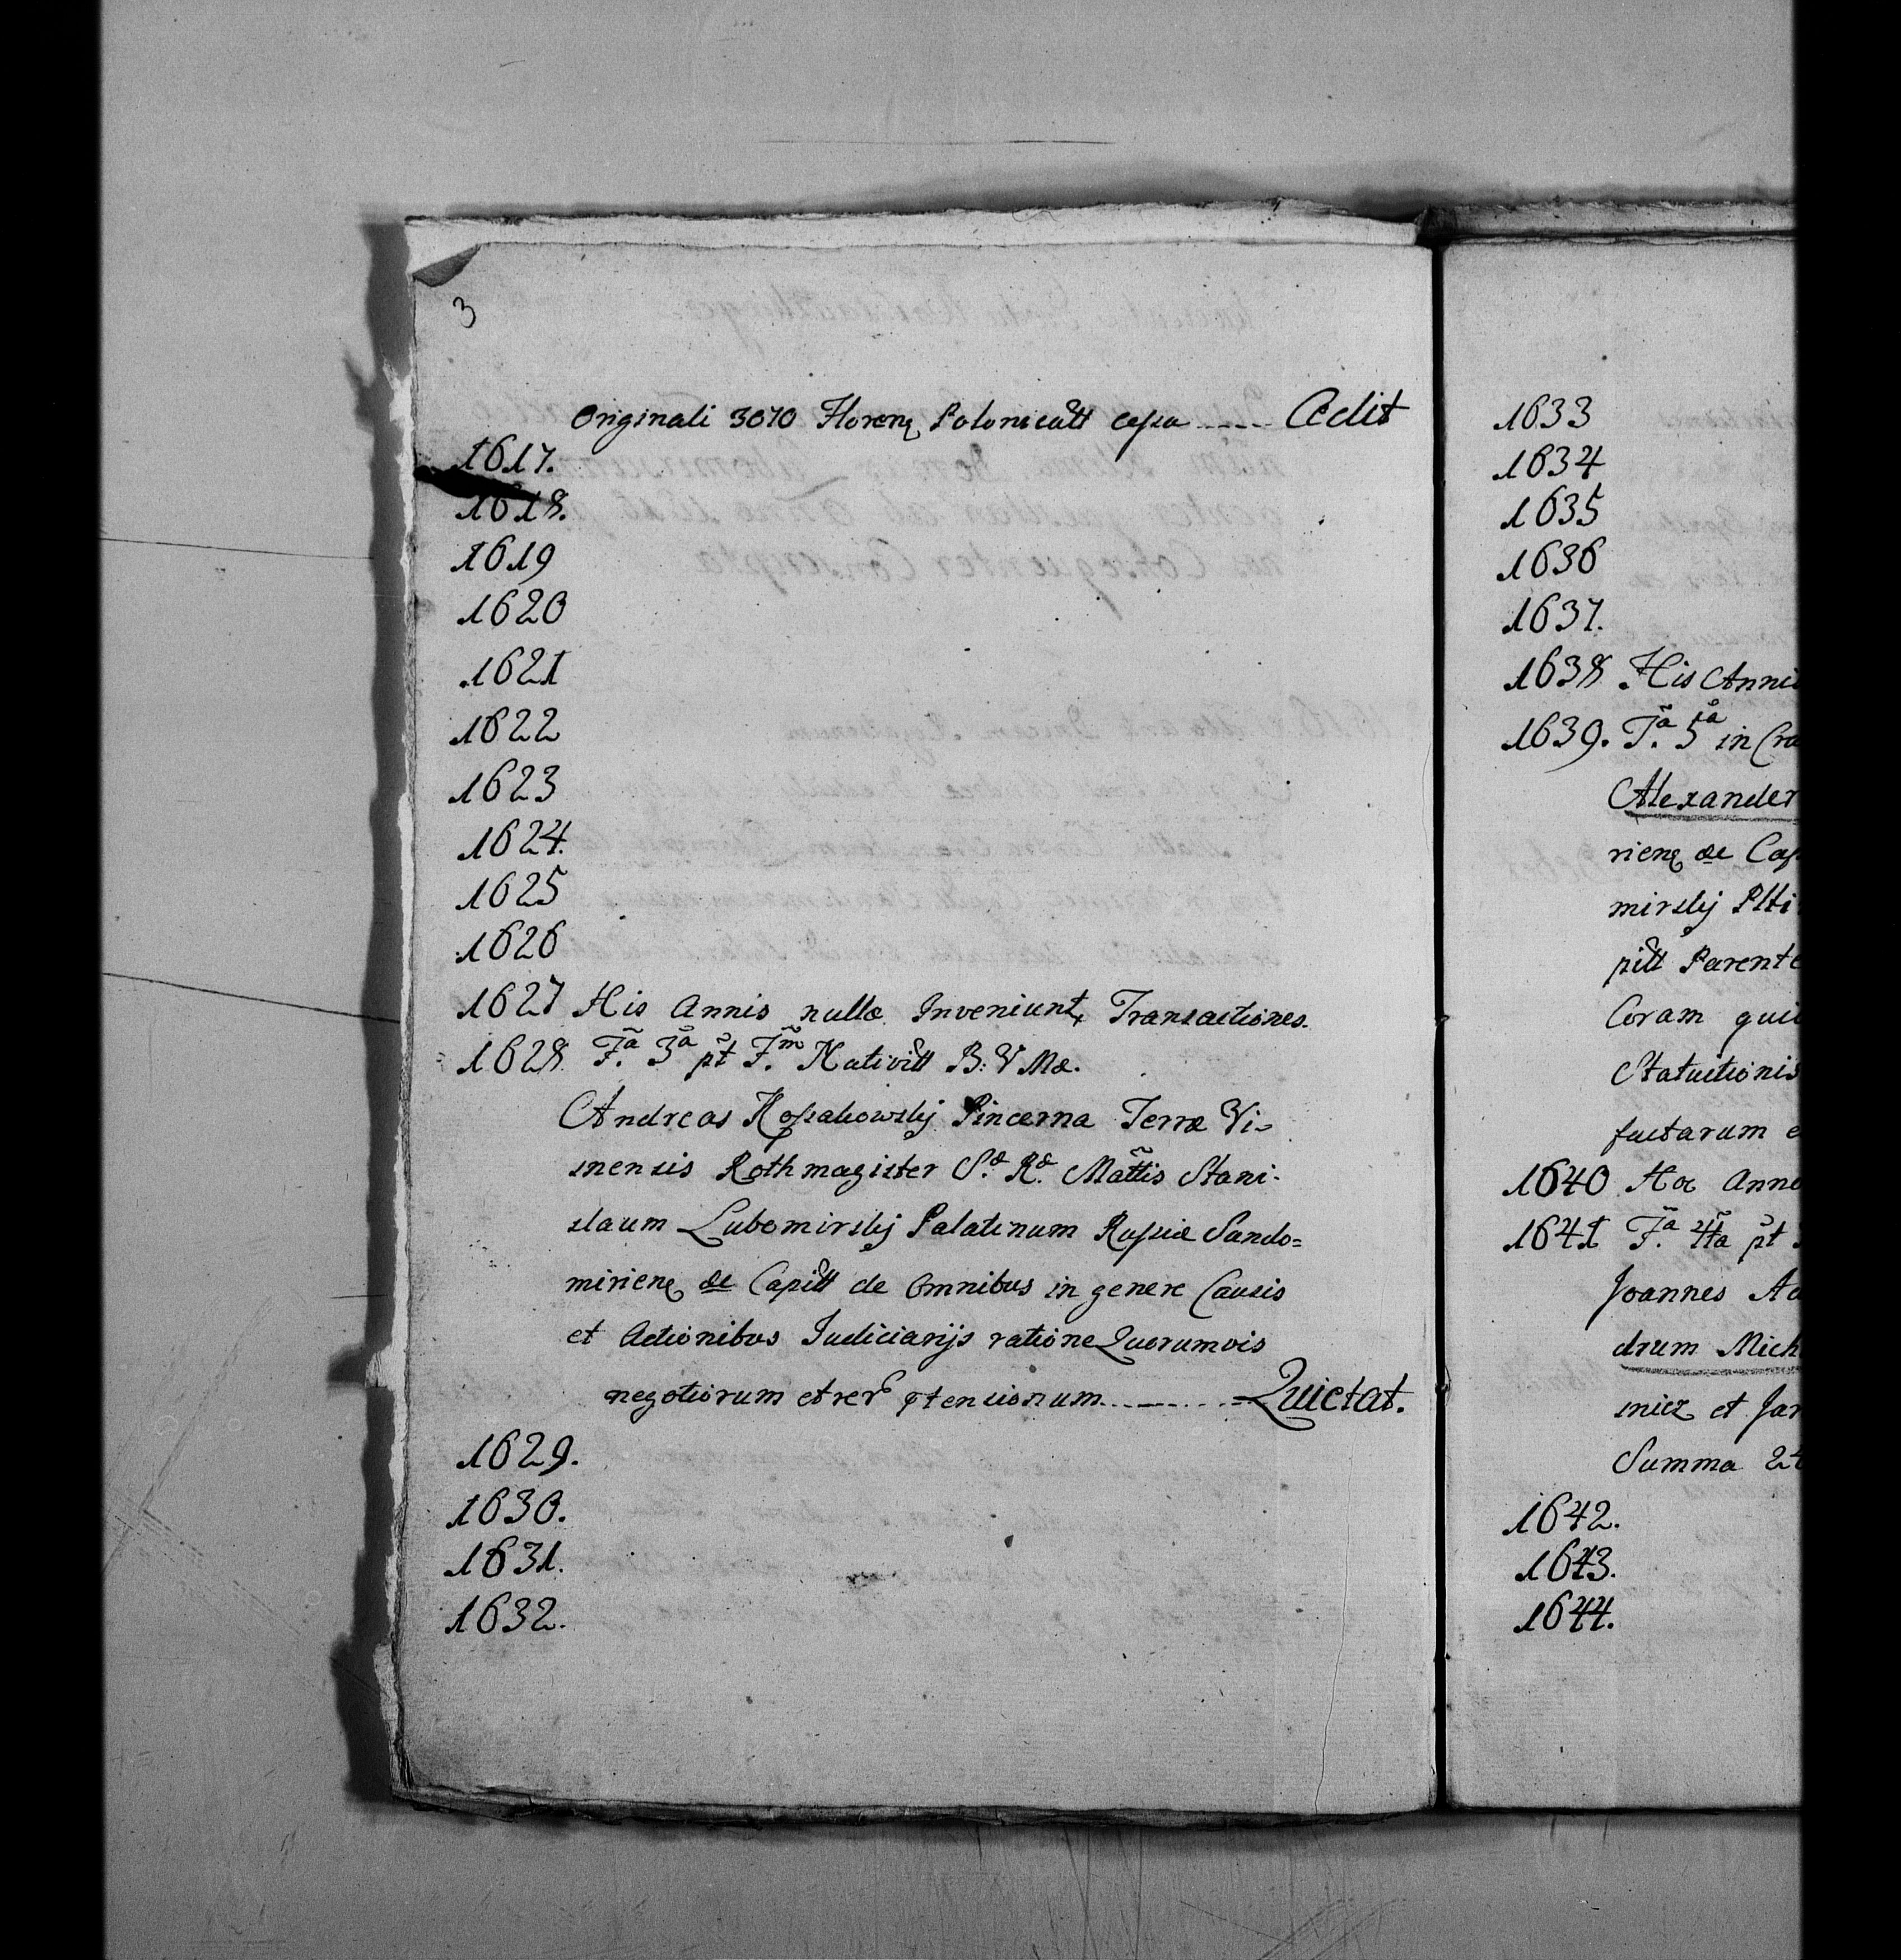 3
Originali 3070 Floren Polonicall cessa ..... Cedit
1617.
1618.
1619
1620
1621
1622
1623
1624.
1625
1626
1627 His Annis nullæ Inveniunt, Transactiones.
1628 F.ã 3å pt F.m̃ Nativitt B: V Mæ.
Andreas Kossakowskij Pincerna Terræ Vi=
snensis Rothmagister S. R. Mattis Stani-
slaum Lubomirskij Palatinum Russiæ Sando=
mirien de Capitt de Omnibus in genere Causis
et Actionibus Iudiciarijs ratione Quorumvis
negotiorum et rer ptensionum .......... Quietat.
1629.
1630.
1631.
1632.
1633
1634
1635
1636
1637.
1638 His Anni
1639. F.ã 5ta in Cra
Alexander
rien de Cap
mirskij Ptti
pitt Parente
Coram qui
Statuitionis
factarum e
1640 Hoc Anno
1641 F.ã 4ta pt
Joannes Ad
drum Mich
snicz et Jar
Summa 24
1642.
1643.
1644.